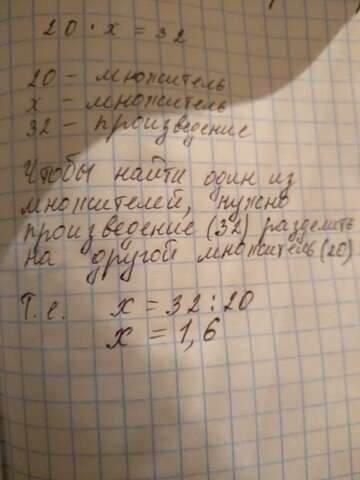 20 · x = 32
20 – множитель
x – множитель
32 – произведение
Чтобы найти один из
множителей, нужно
произведение (32) разделить
на другой множитель (20)
Т.е. x = 32 : 20
x = 1,6